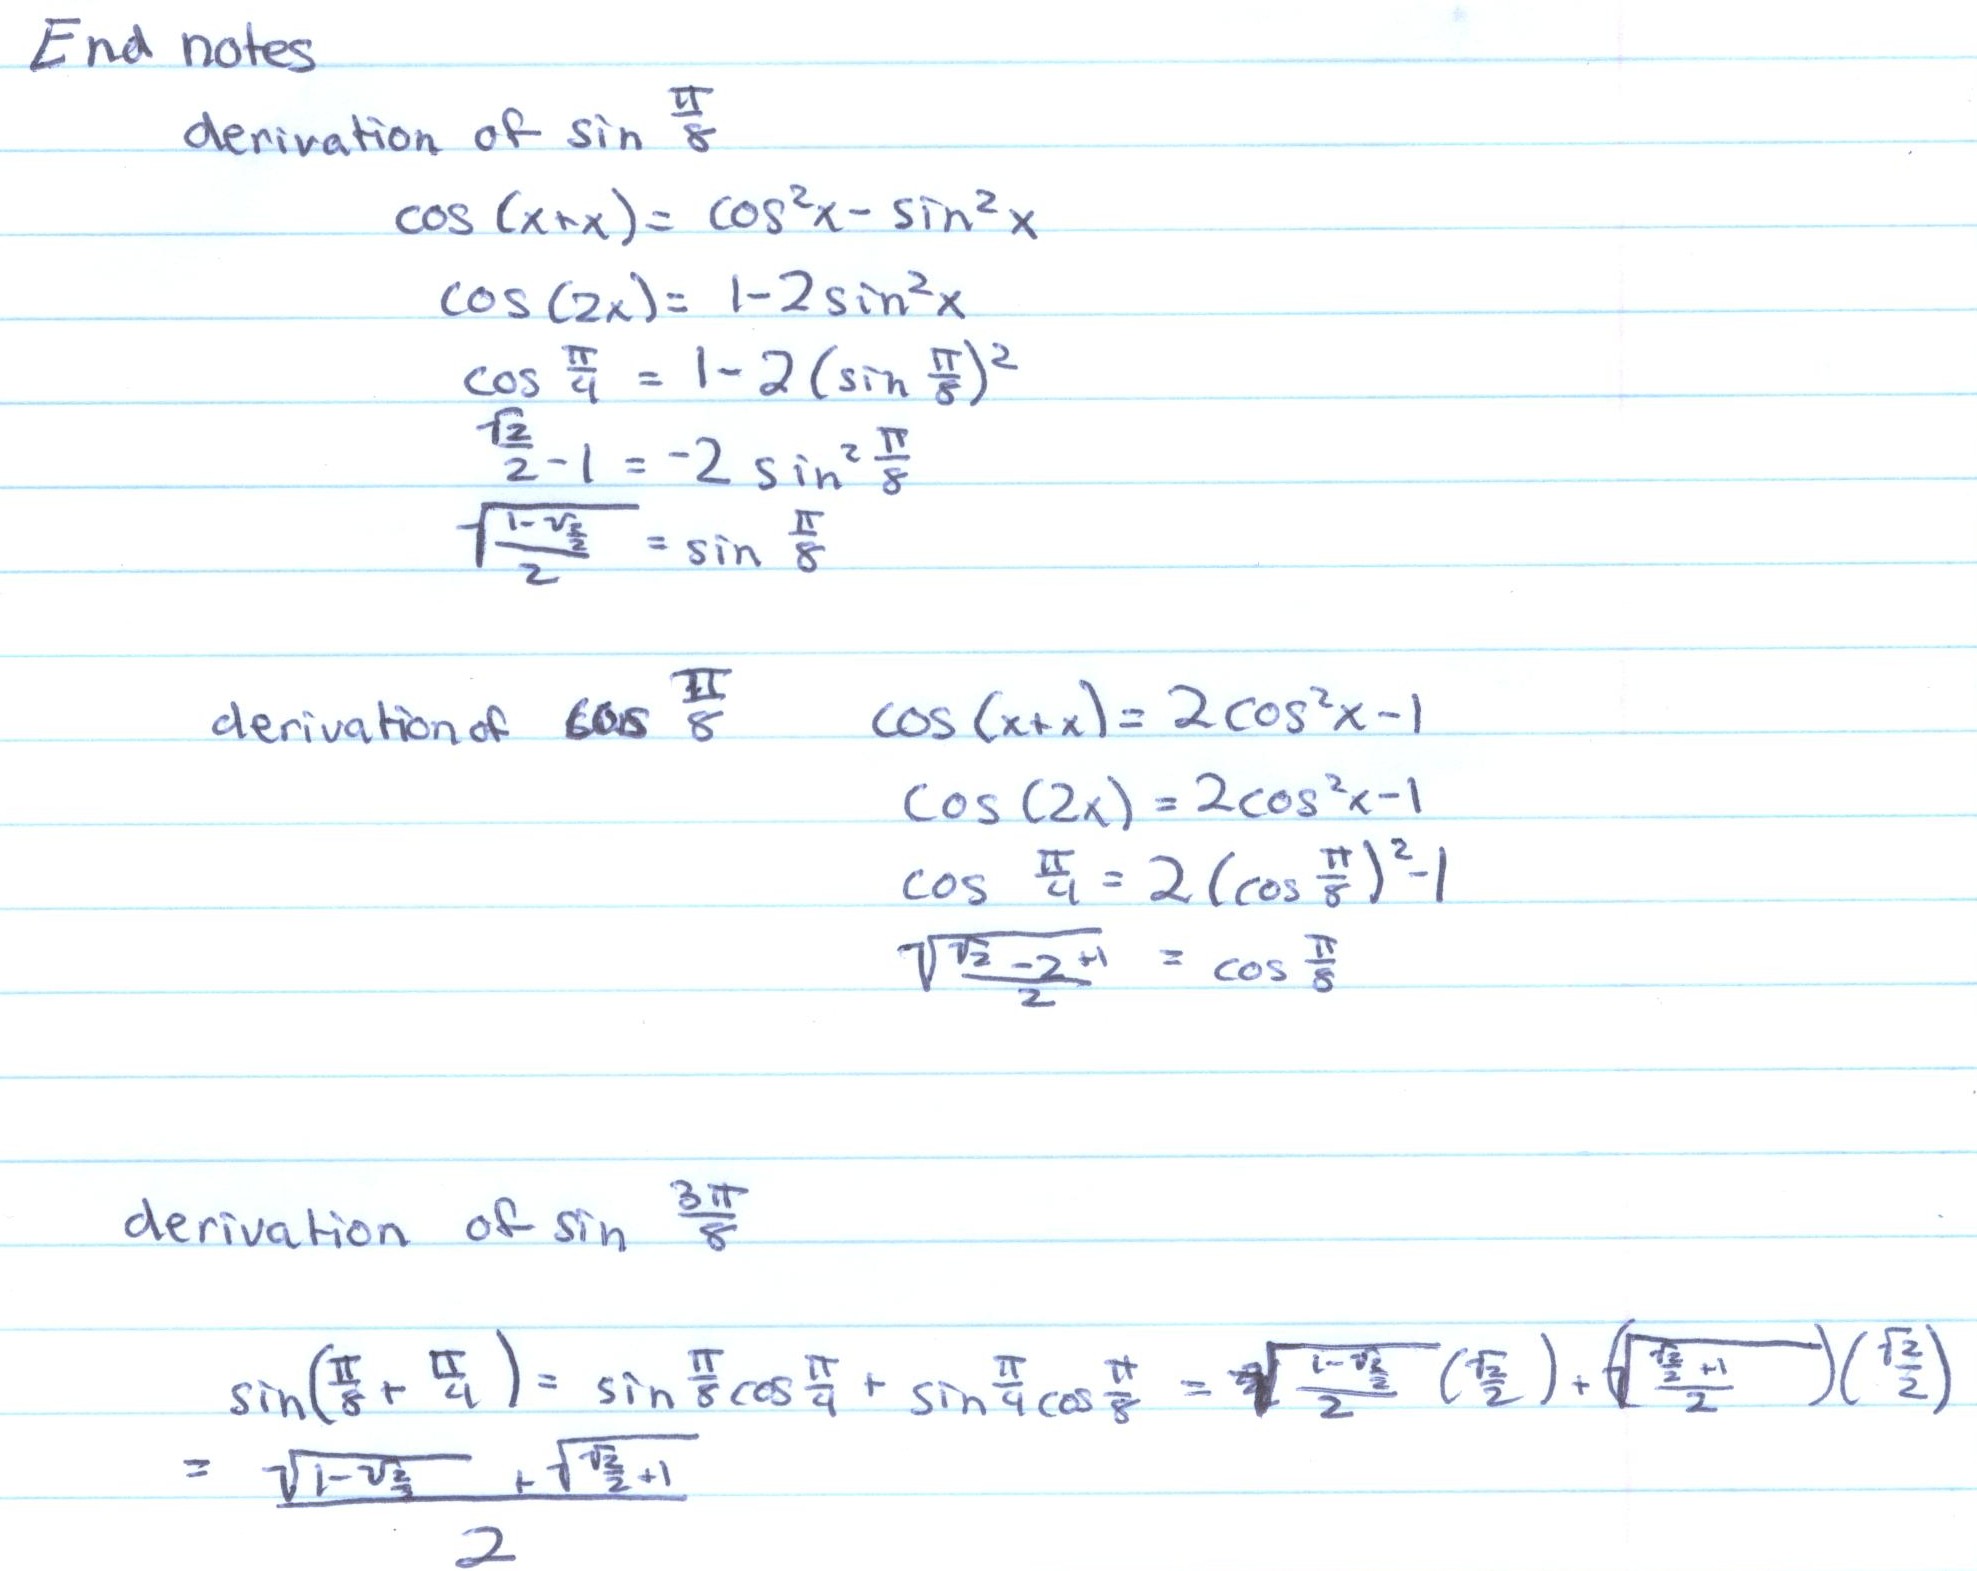 End notes
derivation of sin π/8
cos (x+x) = cos²x - sin²x
cos (2x) = 1-2sin²x
cos π/4 = 1-2(sin π/8)²
√2/2 -1 = -2 sin² π/8
√((1-√2/2)/2) = sin π/8
derivation of cos π/8
cos (x+x) = 2cos²x-1
cos (2x) = 2cos²x-1
cos π/4 = 2(cos π/8)²-1
√((√2 -2 +1)/2) = cos π/8
derivation of sin 3π/8
sin(π/8 + π/4) = sin π/8 cos π/4 + sin π/4 cos π/8 = √((1-√2/2)/2) (√2/2) + (√((√2/2 +1)/2))(√2/2)
= (√(1-√2/2) + √(√2/2 +1))/2